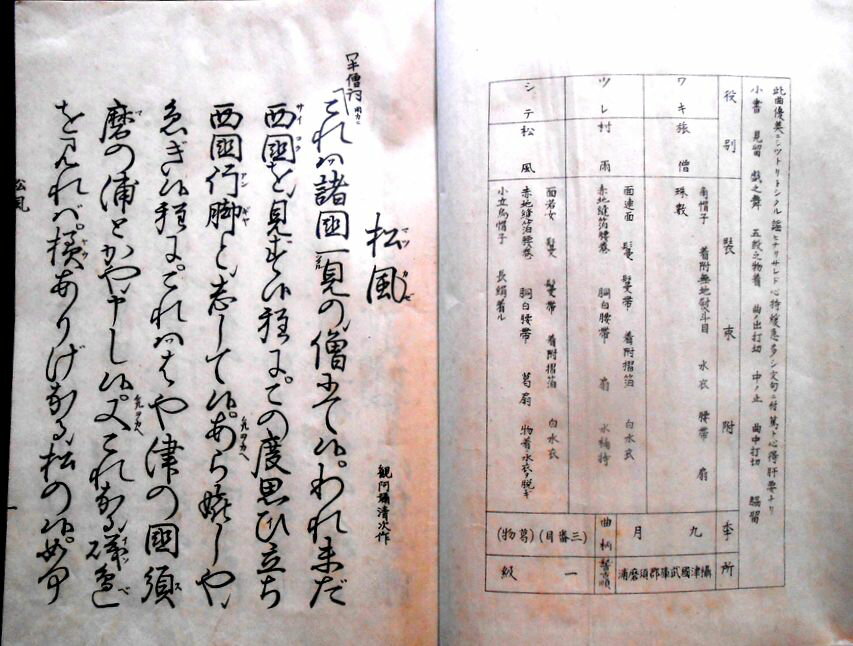 此曲優美ニシツトリトシタル謡ヒナリサレド心持緩急多シ文句ニ付篤ト心得肝要ナリ
小書 見留 戯之舞 五段之物着 曲ノ出打切 中ノ止 曲中打切 脇留
役別 装束附 季所
ワキ 旅僧
角帽子 着附無地熨斗目 水衣 腰帯 扇
珠数
九月
攝津國武庫郡須磨浦
ツレ 村雨
面連面 鬘 鬘帯 着附摺箔 白水衣
赤地縫箔腰巻 胴白腰帯 扇 水桶持
曲柄
シテ 松風
面若女 鬘 鬘帯 着附摺箔 白水衣
赤地縫箔腰巻 胴白腰帯 葛扇 物着水衣ヲ脱ギ
小立烏帽子 長絹着ル
(三番目)(葛物)
一級
松風
マツカゼ
観阿彌清次作
ワキ僧詞
これハ諸國一見の僧にて候。われ未だ
西國を見ず候程に。この度思ひ立ち
西國行脚と志して候。あら嬉しや
急ぎ候程に。これハはや津の國須
磨の浦とかや申し候。又これなる磯邊
を見れバ。様ありげなる松の候。如何
松風